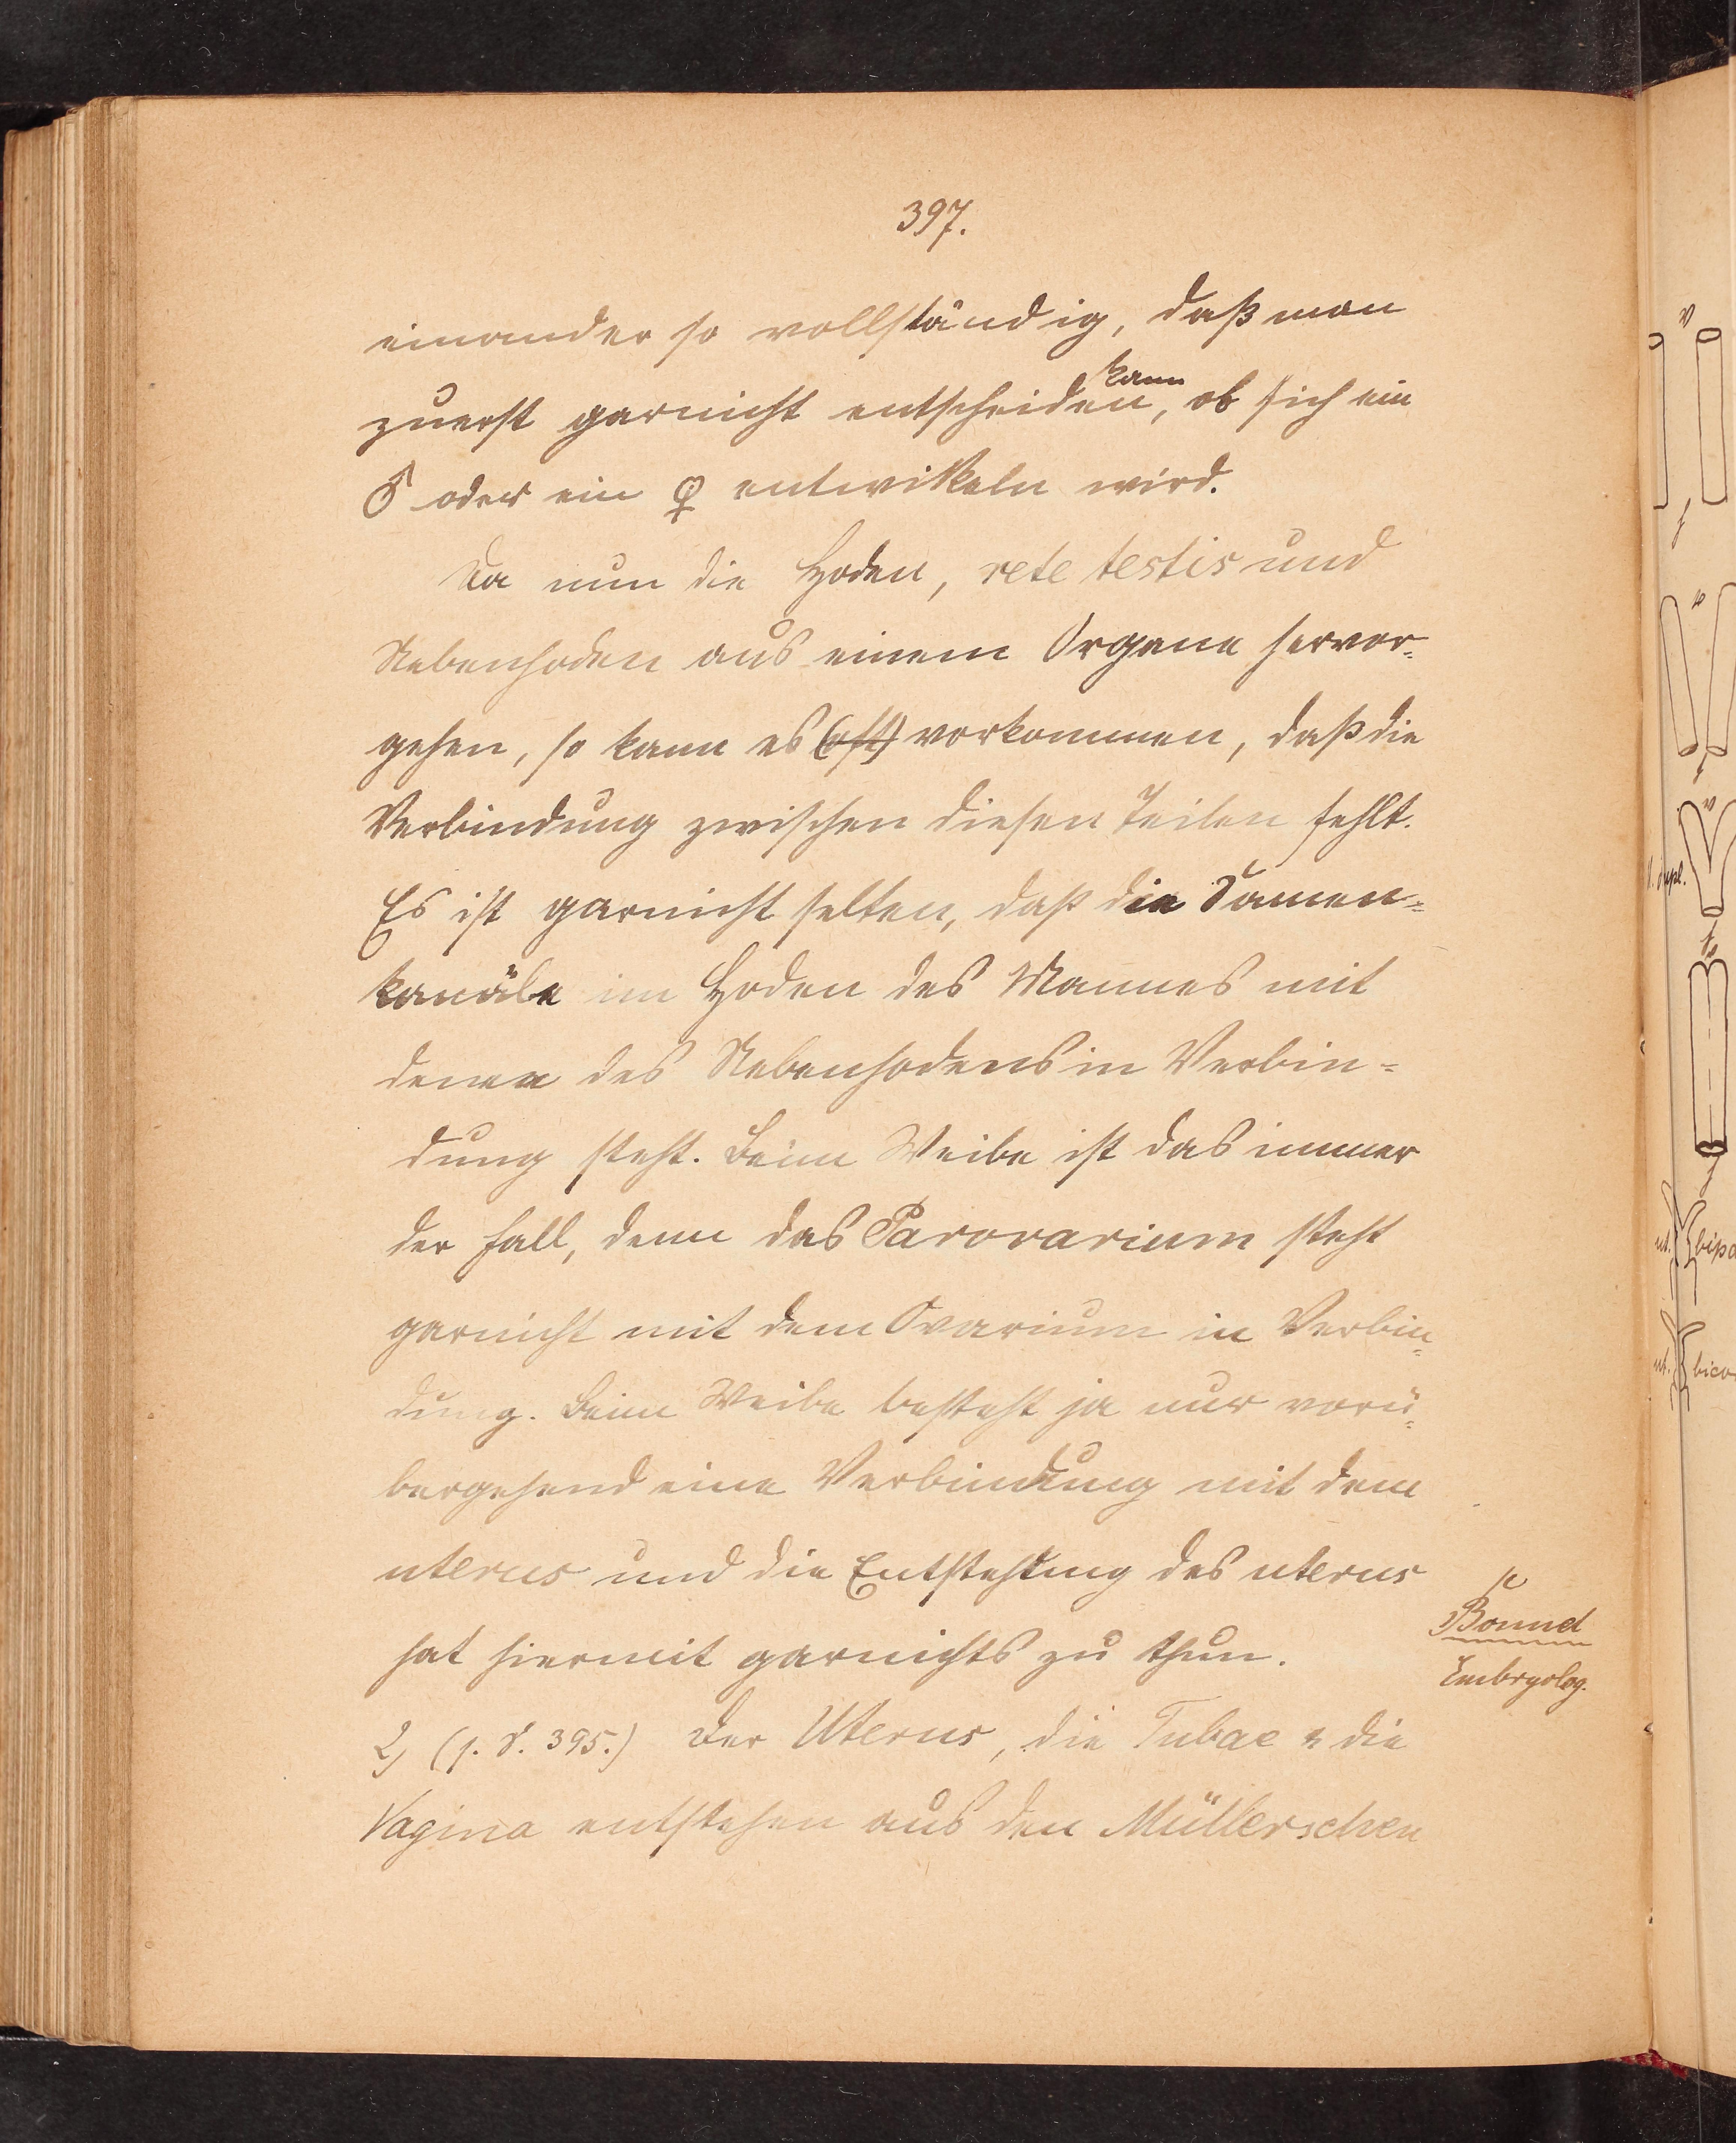 397.
einander so vollständig, daß man
zuerst garnicht entscheiden kann, ob sich ein
♂ oder ein ♀ entwikkeln wird.
Da nun die Hoden, rete testis und
Nebenhoden aus einem Organe hervor-
gehen, so kann es (oft) vorkommen, daß die
Verbindung zwischen diesen Teilen fehlt.
Es ist garnicht selten, daß die Samen-
kanäle im Hoden des Mannes mit
denen des Nebenhodens in Verbin-
dung steht. Beim Weibe ist das immer
der Fall, denn das Parovarium steht
garnicht mit dem Ovarium in Verbin-
dung. Beim Weibe besteht ja nur vorü-
bergehend eine Verbindung mit dem
uterus und die Entstehung des uterus
hat hiermit garnichts zu thun.
2) (s. S. 395.) Der Uterus, die Tubae & die
Vagina entstehen aus den Müllerschen
Bonnet
Embryolog.